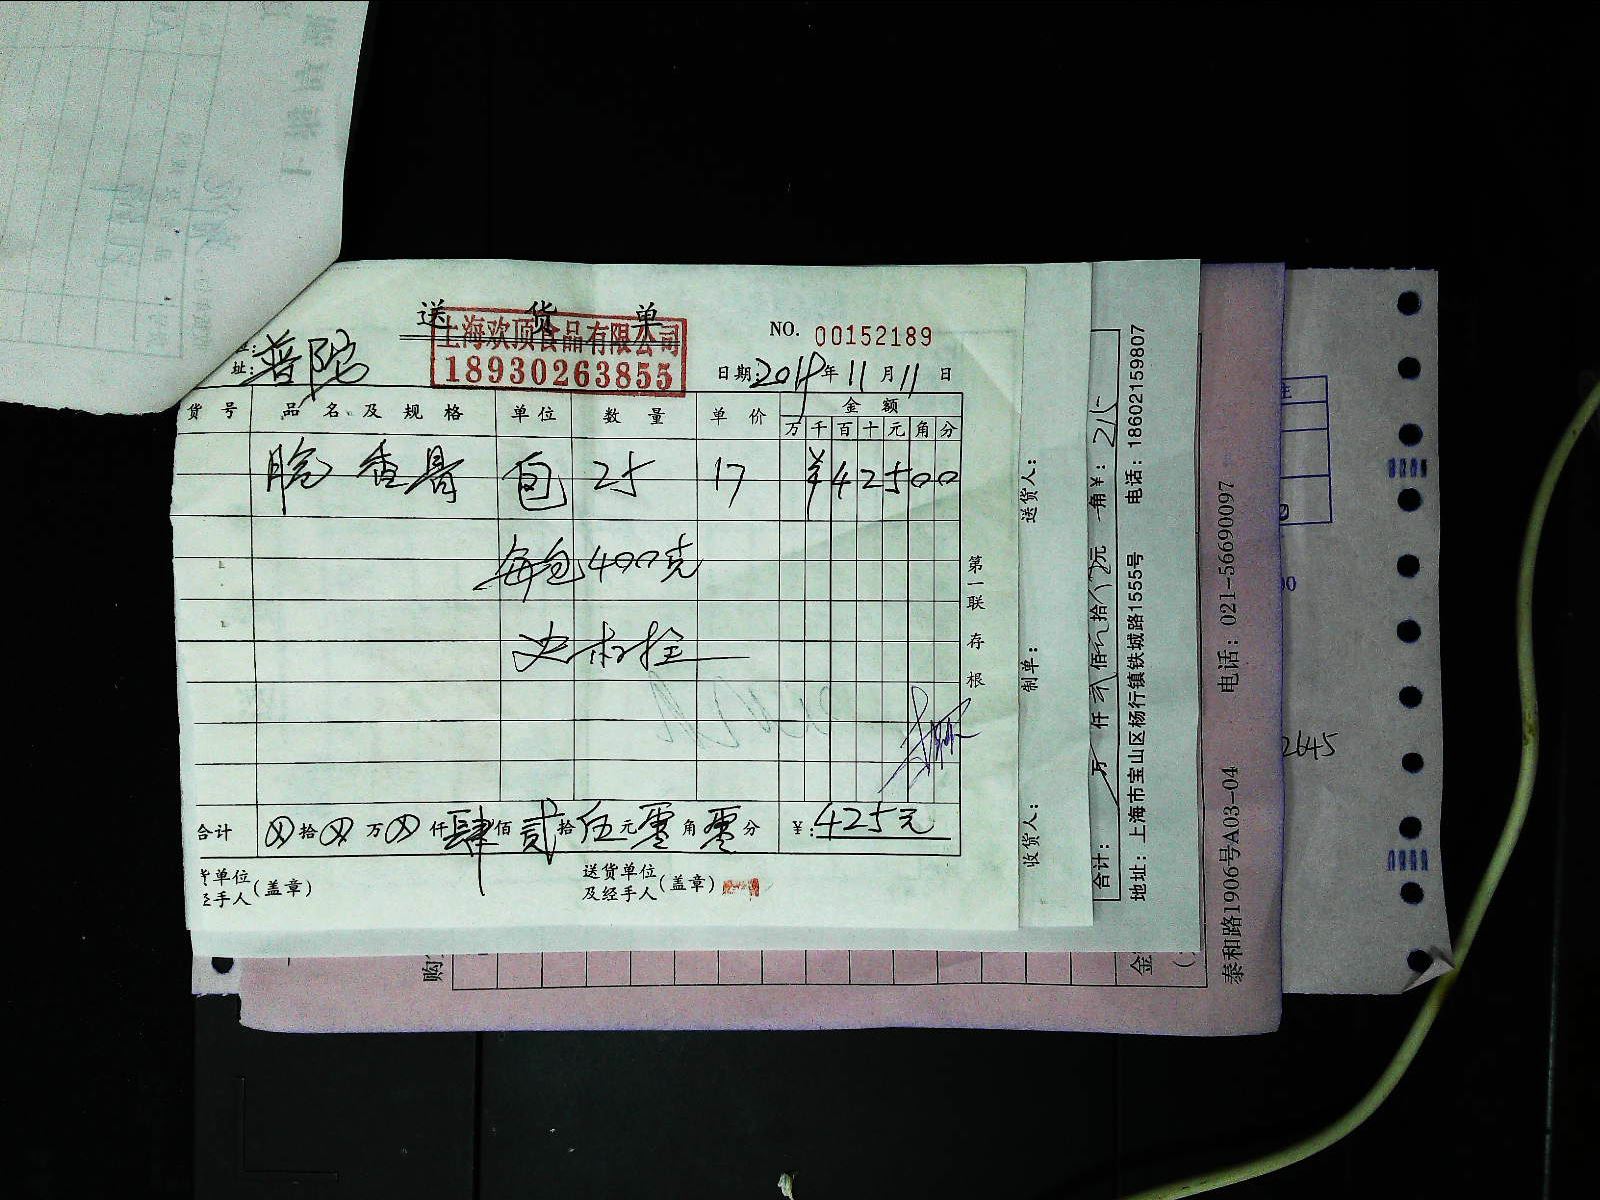 送货单
上海欢顶食品有限公司
18930263855
NO. 00152189
址: 普陀
日期: 2019年11月11日
货号 品名及规格 单位 数量 单价 金额
万千百十元角分
包 25 17 ¥42500
每包400克
第一联存根
合计 ⊗拾⊗万⊗仟肆佰贰拾伍元零角零分 ¥: 425元
单位
手人(盖章)
送货单位
及经手人(盖章)
收货人: 制单: 送货人:
合计: 万 仟 佰 拾 元 角 ¥: 215
地址: 上海市宝山区杨行镇铁城路1555号 电话: 18602159807
泰和路1906号A03-04 电话: 021-56690097
2645
购
金